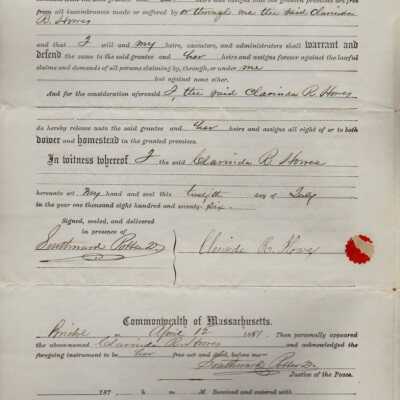 from all incumbrances made or suffered by or through me the said Clarinda
R. Howes
and that I will and my heirs, executors, and administrators shall warrant and
defend the same to the said grantee and her heirs and assigns forever against the lawful
claims and demands of all persons claiming by, through, or under me
but against none other.
And for the consideration aforesaid I, the said Clarinda R. Howes
do hereby release unto the said grantee and her heirs and assigns all right of or to both
dower and homestead in the granted premises.
In witness whereof I the said Clarinda R. Howes
hereunto set my hand and seal this twelfth day of July
in the year one thousand eight hundred and seventy-six.
Signed, sealed, and delivered
in presence of
Southward Potter
Commonwealth of Massachusetts.
April 12 1881. Then personally appeared
the above-named Clarinda R. Howes and acknowledged the
foregoing instrument to be her free act and deed, before me—
Southward Potter
Justice of the Peace.
187 h. m. M. Received and entered with